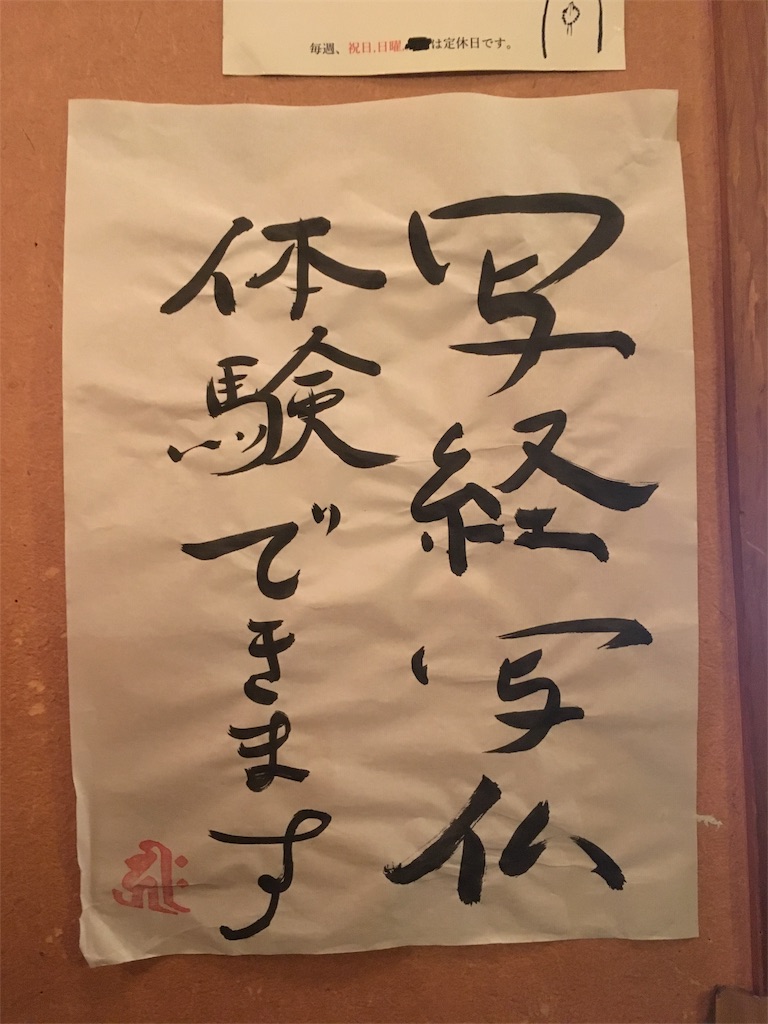 毎週、祝日,日曜,は定休日です。
写経写仏
体験できます